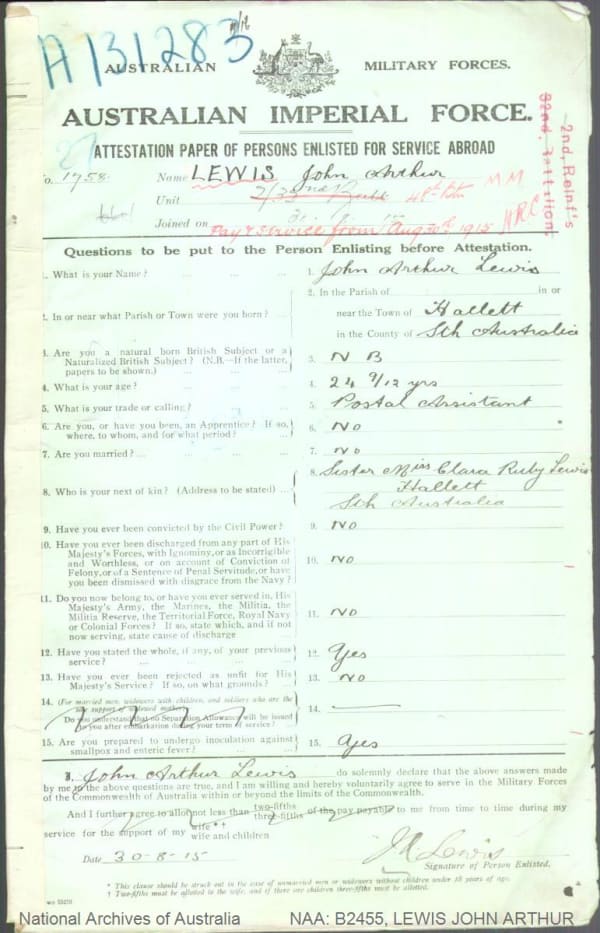 A131283
AUSTRALIAN MILITARY FORCES.
AUSTRALIAN IMPERIAL FORCE.
27
ATTESTATION PAPER OF PERSONS ENLISTED FOR SERVICE ABROAD
No. 1758 Name LEWIS John Arthur
Unit 2/32nd Batt 48th Btn MM
Joined on
Pay & Service from Aug 30th 1915
32nd. Battalion
2nd, Reinf's
Questions to be put to the Person Enlisting before Attestation.
1. What is your Name? ... ... 1. John Arthur Lewis
2. In or near what Parish or Town were you born? ... 2. In the Parish of in or
near the Town of Hallett
in the County of Sth Australia
3. Are you a natural born British Subject or a Naturalized British Subject? (N.B.—If the latter, papers to be shown.) ... 3. N B
4. What is your age? ... 4. 24 9/12 yrs
5. What is your trade or calling? ... 5. Postal Assistant
6. Are you, or have you been, an Apprentice? If so, where, to whom, and for what period? ... 6. No
7. Are you married? ... 7. No
8. Who is your next of kin? (Address to be stated) ... 8. Sister Miss Clara Ruby Lewis
Hallett
Sth Australia
9. Have you ever been convicted by the Civil Power? 9. No
10. Have you ever been discharged from any part of His Majesty's Forces, with Ignominy, or as Incorrigible and Worthless, or on account of Conviction of Felony, or of a Sentence of Penal Servitude, or have you been dismissed with disgrace from the Navy? 10. No
11. Do you now belong to, or have you ever served in, His Majesty's Army, the Marines, the Militia, the Militia Reserve, the Territorial Force, Royal Navy or Colonial Forces? If so, state which, and if not now serving, state cause of discharge ... 11. No
12. Have you stated the whole, if any, of your previous service? ... 12. Yes
13. Have you ever been rejected as unfit for His Majesty's Service? If so, on what grounds? ... 13. No
14. (For married men, widowers with children, and soldiers who are the sole support of widowed mother)
Do you understand that no Separation Allowance will be issued to you after embarkation during your term of service? 14.
15. Are you prepared to undergo inoculation against smallpox and enteric fever? ... 15. Yes
I, John Arthur Lewis do solemnly declare that the above answers made
by me to the above questions are true, and I am willing and hereby voluntarily agree to serve in the Military Forces
of the Commonwealth of Australia within or beyond the limits of the Commonwealth.
And I further agree to allot not less than two-fifths three-fifths of the pay payable to me from time to time during my
service for the support of my wife*† wife and children
Date 30-8-15 J A Lewis
Signature of Person Enlisted.
* This clause should be struck out in the case of unmarried men or widowers without children under 18 years of age.
† Two-fifths must be allotted to the wife, and if there are children three-fifths must be allotted.
National Archives of Australia NAA: B2455, LEWIS JOHN ARTHUR